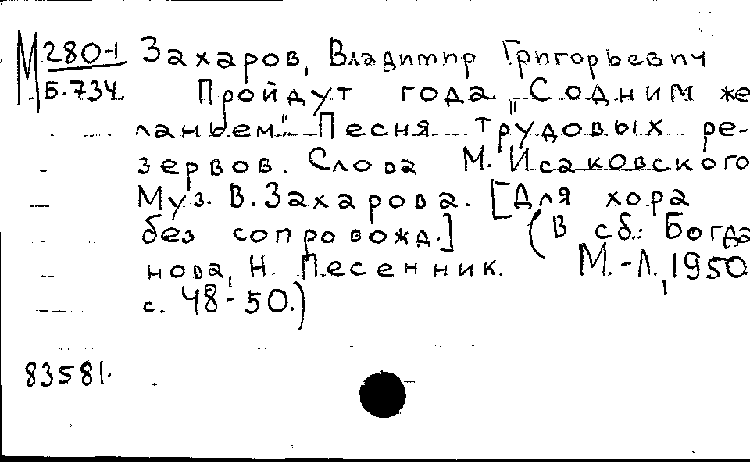 М 280-1 Захаров, Владимир Григорьевич
Б.734 Пройдут года „С одним же-
ланьем". Песня трудовых ре-
зервов. Слова М. Исаковского
Муз. В. Захарова. [Для хора
без сопровожд.] (В сб.: Богда
нова, Н. Песенник. М.-Л., 1950
с. 48-50.)
83581.